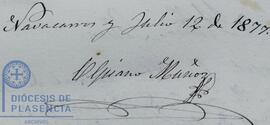 Navaconcejo y Julio 12 de 1877
Cipriano Muñoz
DIÓCESIS DE
PLASENCIA
ARCHIVOS